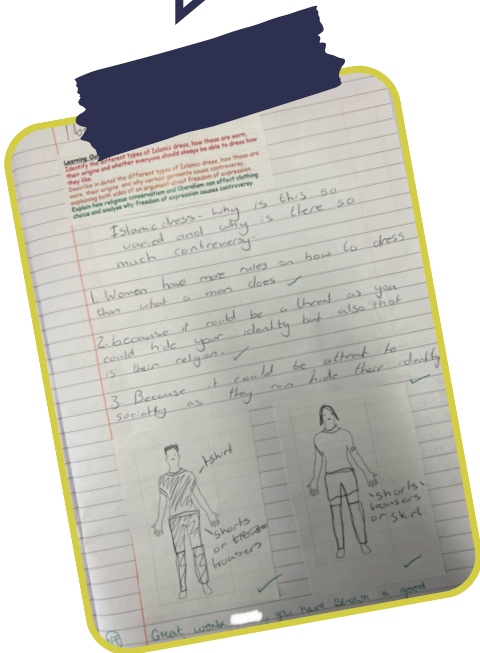 Learning Ou
Identify the different types of Islamic dress, how these are worn,
their origin and whether everyone should always be able to dress how
they like.
Describe in detail the different types of Islamic dress, how these are
worn, their origin and why certain garments cause controversy,
explaining both sides of an argument about freedom of expression.
Explain how religious conservatism and liberalism can effect clothing
choice and analyse why freedom of expression causes controversy.
Islamic dress - why is this so
varied and why is there so
much controversy.
1. Women have more rules on how to dress
than what a man does
2. because it could be a threat as you
could hide your identity but also that
is their religion.
3. Because it could be
as they can hide their identity
tshirt
shorts
or
trousers
shorts
trousers
or skirt
Great work
, you have shown a good